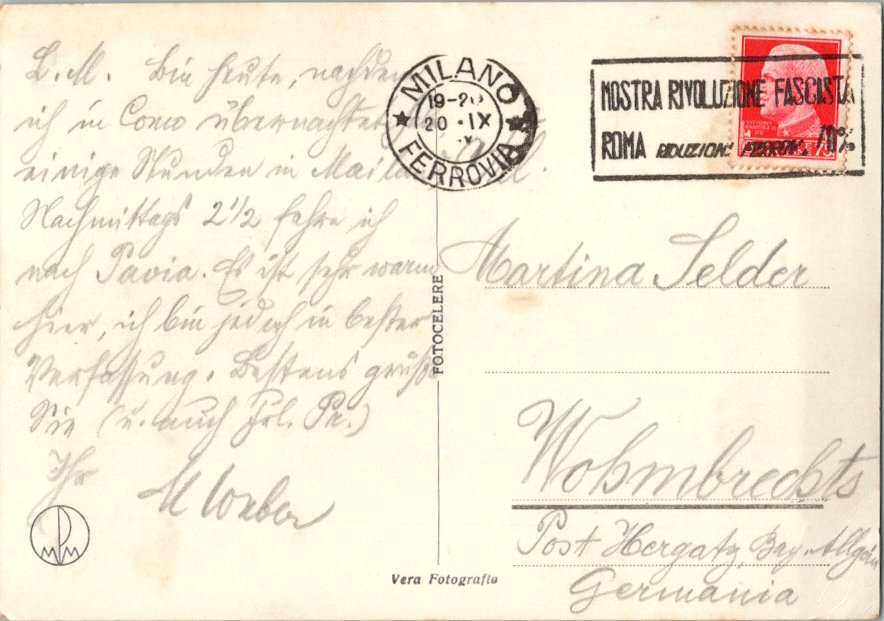 L. M. Bin heute, nachdem
ich in Como übernachtet,
einige Stunden in Mailand.
Nachmittags 2 1/2 fahre ich
nach Pavia. Es ist sehr warm
hier, ich bin jedoch in bester
Verfassung. Bestens grüßt
Sie (u. auch Frl. Pa.)
Ihr
MILANO
19-20
20 . IX
FERROVIA
NOSTRA RIVOLUZIONE FASCISTA
ROMA RIDUZIONI FERROV. 70%
Martina Selder
Wohmbrechts
Post Hergatz, Bay. Allgäu
Germania
FOTOCELERE
Vera Fotografia